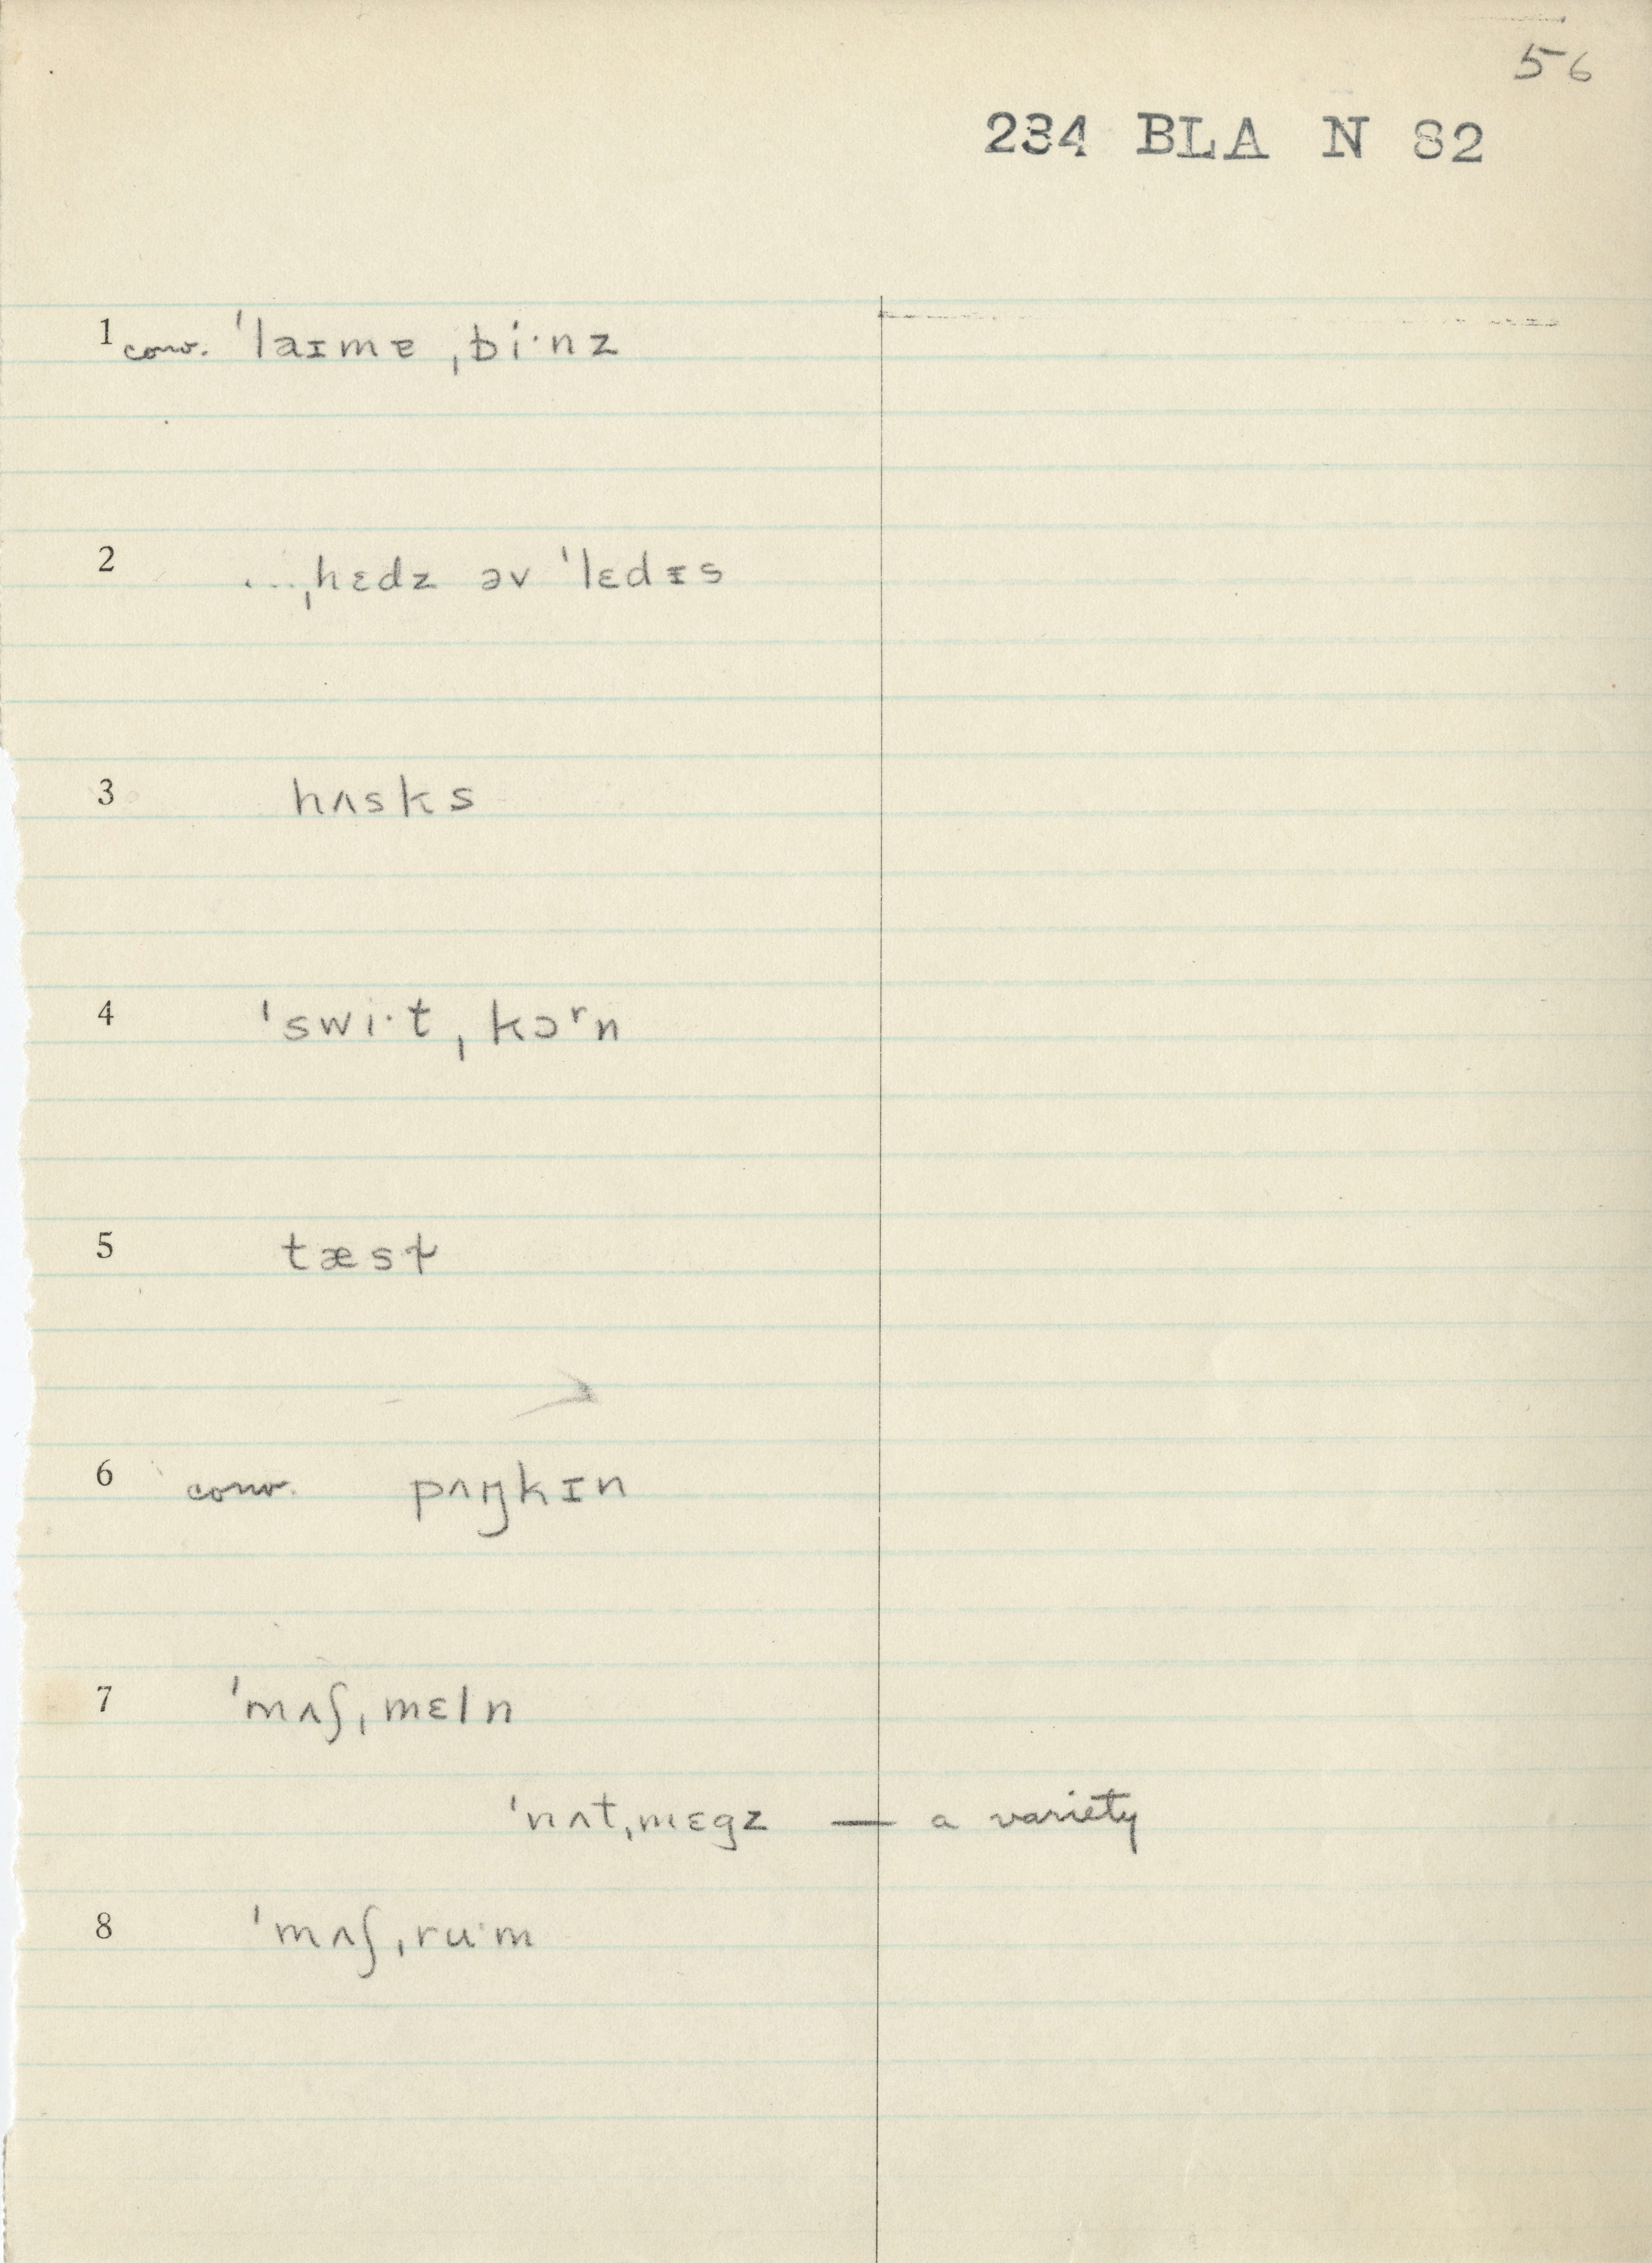 56
234 BLA N 82
1 conv. ˈlaɪmɐ ˌbi·nz
2 ...ˌhɛdz əv ˈlɛdɪs
3 hʌsks
4 ˈswi·t ˌkɔʳn
5 tæsɫ
6 conv. pʌŋkɪn
7 ˈmʌʃˌmɛln
ˈnʌtˌmɛgz — a variety
8 ˈmʌʃˌru·m